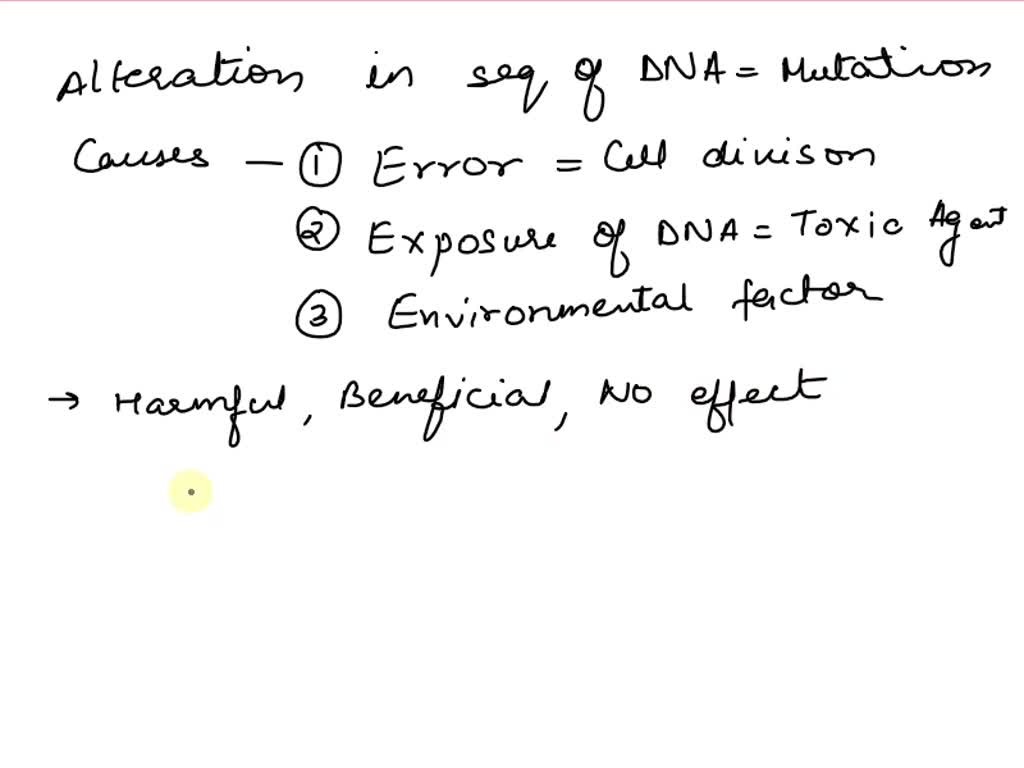 Alteration in seq of DNA = Mutation
Causes - ① Error = Cell divison
② Exposure of DNA = Toxic Agent
③ Environmental factor
→ Harmful, Beneficial, No effect